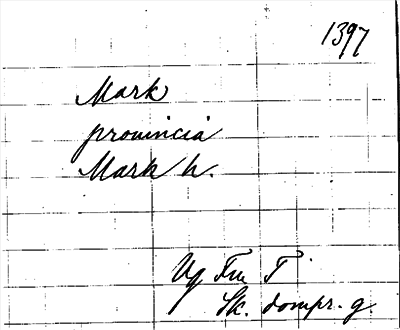 1397
Mark
provincia
Mark h.
Ug Fru T
Sk. dompr. g.